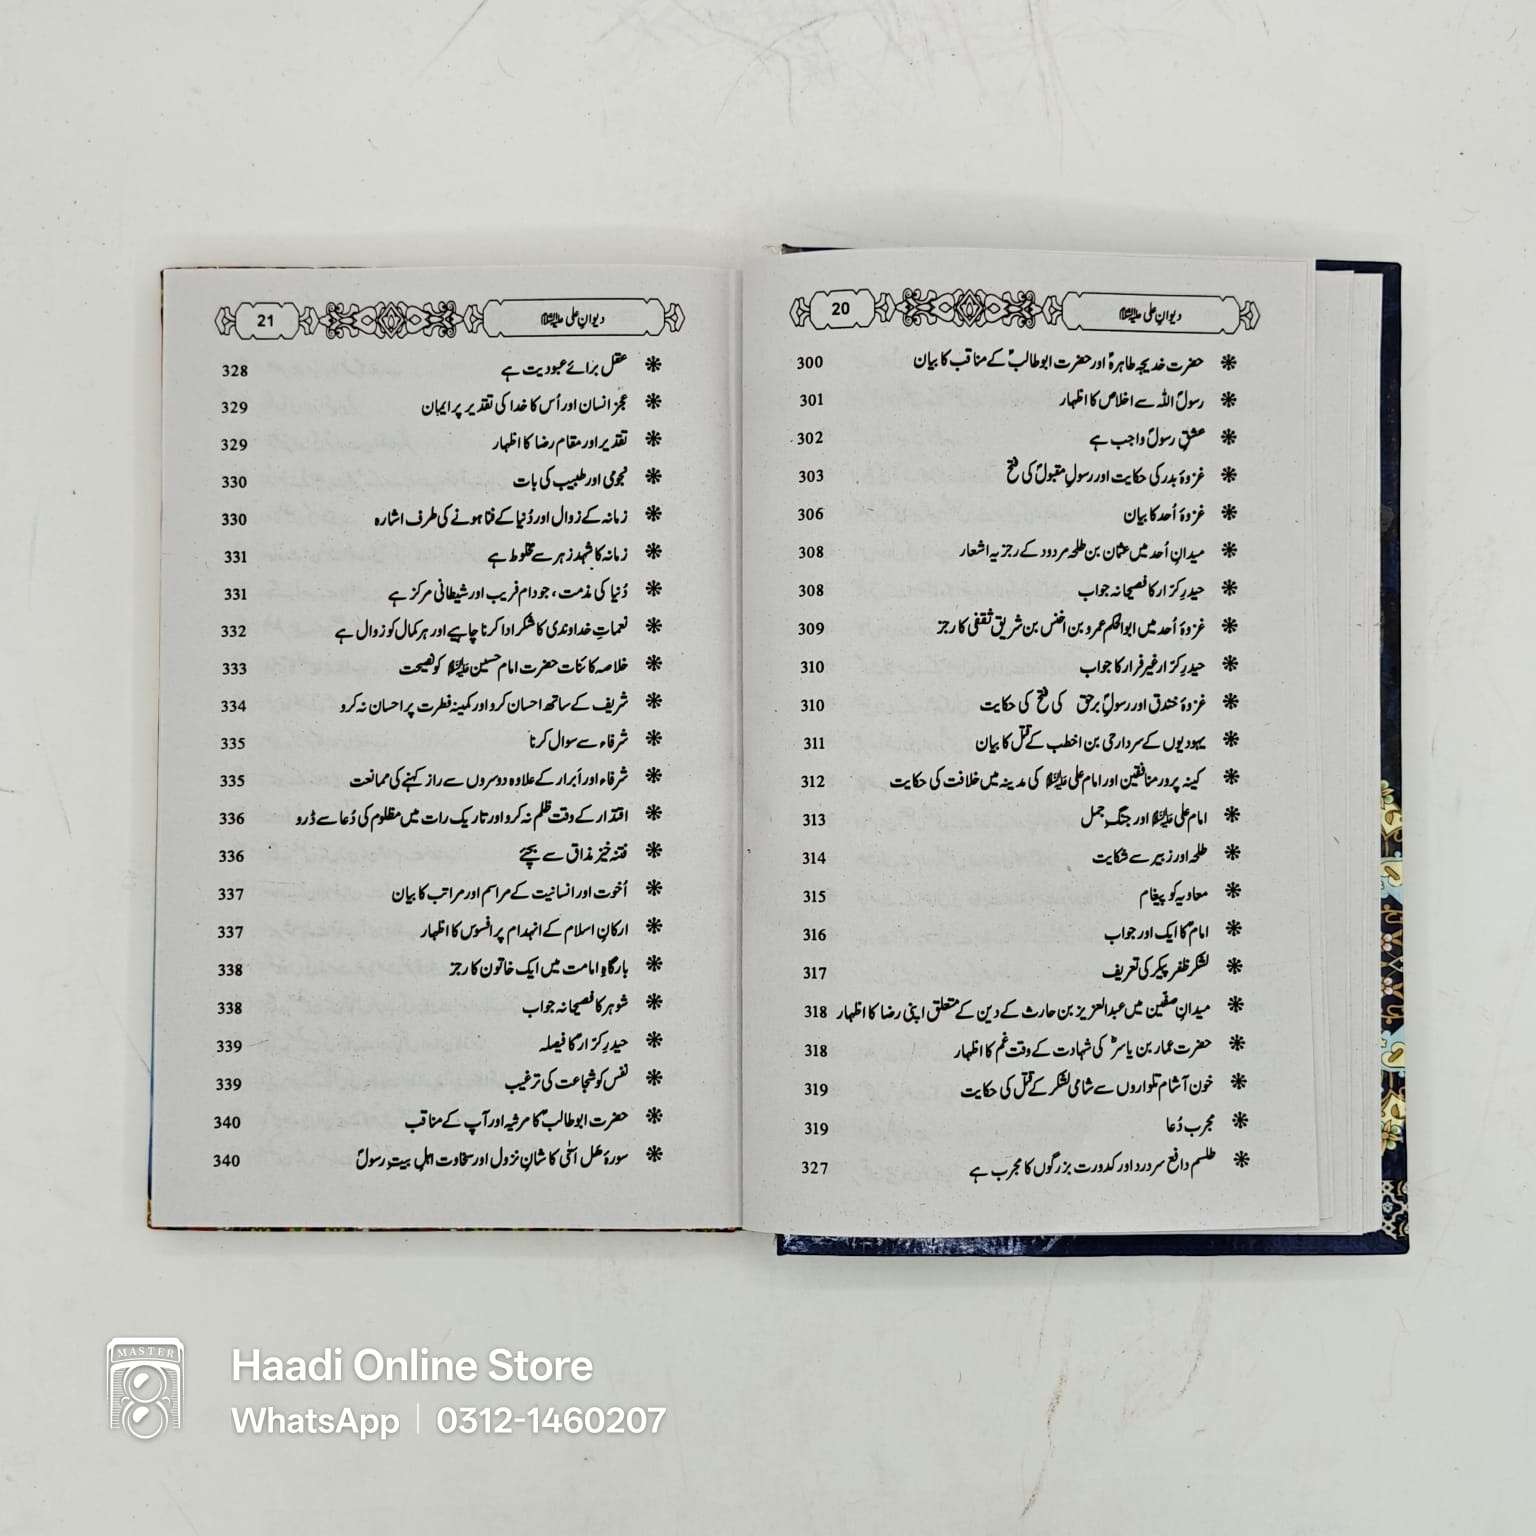 دیوانِ علی علیہ السلام 20
حضرت خدیجہ طاہرہؑ اور حضرت ابوطالبؑ کے مناقب کا بیان 300
رسولؐ اللہ سے اخلاص کا اظہار 301
عشقِ رسولؐ واجب ہے 302
غزوۂ بدر کی حکایت اور رسولِ مقبولؐ کی فتح 303
غزوۂ اُحد کا بیان 306
میدانِ اُحد میں عثمان بن طلحہ مردود کے رجزیہ اشعار 308
حیدرِ کرّار کا فصیحانہ جواب 308
غزوۂ اُحد میں ابوالحکم عمرو بن اخنس بن شریق ثقفی کا رجز 309
حیدرِ کرّار غیر فرار کا جواب 310
غزوۂ خندق اور رسولِؐ برحق کی فتح کی حکایت 310
یہودیوں کے سردار حی بن اخطب کے قتل کا بیان 311
کینہ پرور منافقین اور امام علی علیہ السلام کی مدینہ میں خلافت کی حکایت 312
امام علی علیہ السلام اور جنگِ جمل 313
طلحہ اور زبیر سے شکایت 314
معاویہ کو پیغام 315
امامؑ کا ایک اور جواب 316
لشکر ظفر پیکر کی تعریف 317
میدانِ صفین میں عبدالعزیز بن حارث کے دین کے متعلق اپنی رضا کا اظہار 318
حضرت عمار بن یاسرؓ کی شہادت کے وقت غم کا اظہار 318
خون آشام تلواروں سے شامی لشکر کے قتل کی حکایت 319
مجرب دُعا 319
طلسم دافع سردرد اور کدورت بزرگوں کا مجرب ہے 327
دیوانِ علی علیہ السلام 21
عقل برائے عبودیت ہے 328
عجز انسان اور اُس کا خدا کی تقدیر پر ایمان 329
تقدیر اور مقام رضا کا اظہار 329
نجومی اور طبیب کی بات 330
زمانہ کے زوال اور دُنیا کے فنا ہونے کی طرف اشارہ 330
زمانہ کا شہد زہر سے مخلوط ہے 331
دُنیا کی مذمت، جو دام فریب اور شیطانی مرکز ہے 331
نعماتِ خداوندی کا شکر ادا کرنا چاہیے اور ہر کمال کو زوال ہے 332
خلاصہ کائنات حضرت امام حسین علیہ السلام کو نصیحت 333
شریف کے ساتھ احسان کرو اور کمینہ فطرت پر احسان نہ کرو 334
شرفاء سے سوال کرنا 335
شرفاء اور ابرار کے علاوہ دوسروں سے راز کہنے کی ممانعت 335
اقتدار کے وقت ظلم نہ کرو اور تاریک رات میں مظلوم کی دُعا سے ڈرو 336
فتنہ خیز مذاق سے بچئے 336
اُخوت اور انسانیت کے مراسم اور مراتب کا بیان 337
ارکانِ اسلام کے انہدام پر افسوس کا اظہار 337
بارگاہِ امامت میں ایک خاتون کا رجز 338
شوہر کا فصیحانہ جواب 338
حیدرِ کرّارؑ کا فیصلہ 339
نفس کو شجاعت کی ترغیب 339
حضرت ابوطالبؑ کا مرثیہ اور آپ کے مناقب 340
سورۂ ھل اتیٰ کا شانِ نزول اور سخاوت اہلِ بیتِ رسولؐ 340
MASTER
Haadi Online Store
WhatsApp | 0312-1460207